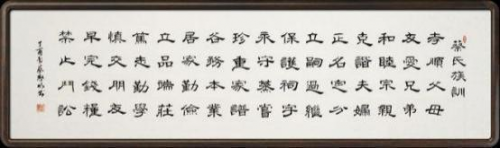 蔡氏族訓
孝順父母
友愛兄弟
和睦宗親
克諧夫婦
正名定分
立嗣
保護祠宇
承守蒸嘗
珍重家譜
各務本業
居家勤儉
立品端莊
篤志勤學
慎交朋友
早完錢糧
禁止鬥訟